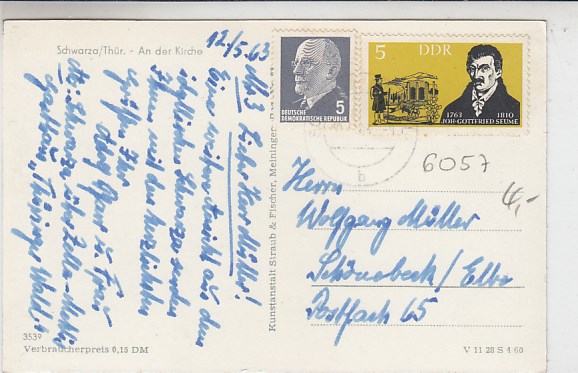 Schwarza/Thür. - An der Kirche
12/5.63
Lieber Herr Müller!
Eine Ansichtskarte aus dem
idyllischen Schwarza senden
Ihnen mit den herzlichsten
Grüßen Ihr
u. Frau
Schwarza über Zella-Mehlis
Gasthaus „Thüringer Wald"
3539
Verbraucherpreis 0,15 DM
Kunstanstalt Straub & Fischer, Meiningen
5
DEUTSCHE
DEMOKRATISCHE REPUBLIK
5 DDR
1763 1810
JOH·GOTTFRIED SEUME
b
6057
4,-
Herrn
Wolfgang Müller
Schönebeck/Elbe
Postfach 65
V 11 28 S 4/60